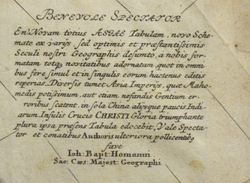 BENEVOLE SPECTATOR
En Novam totius ASIAE Tabulam, novo Sche-
mate ex varijs sed optimis et praestantissimis
Seculi nostri Geographis desumto, a nobis for-
matam totq, novitatibus adornatam quot in omni-
bus fere simul et in singulis eorum hactenus editis
reperias. Diversis tamen Asia Imperijs, quae Maho-
medis potissimum, aut etiam nefandis Gentum er-
roribus scatent, in sola China alijsque paucis Indi-
arum Insulis Crucis CHRISTI Gloria triumphante
plura ipsa praesens Tabula edocebit, Vale Specta-
tor et conatibus Authoris ulteriora pollicentis,
fave
Ioh: Bapt: Homanni
Sac: Caes: Majest: Geographi